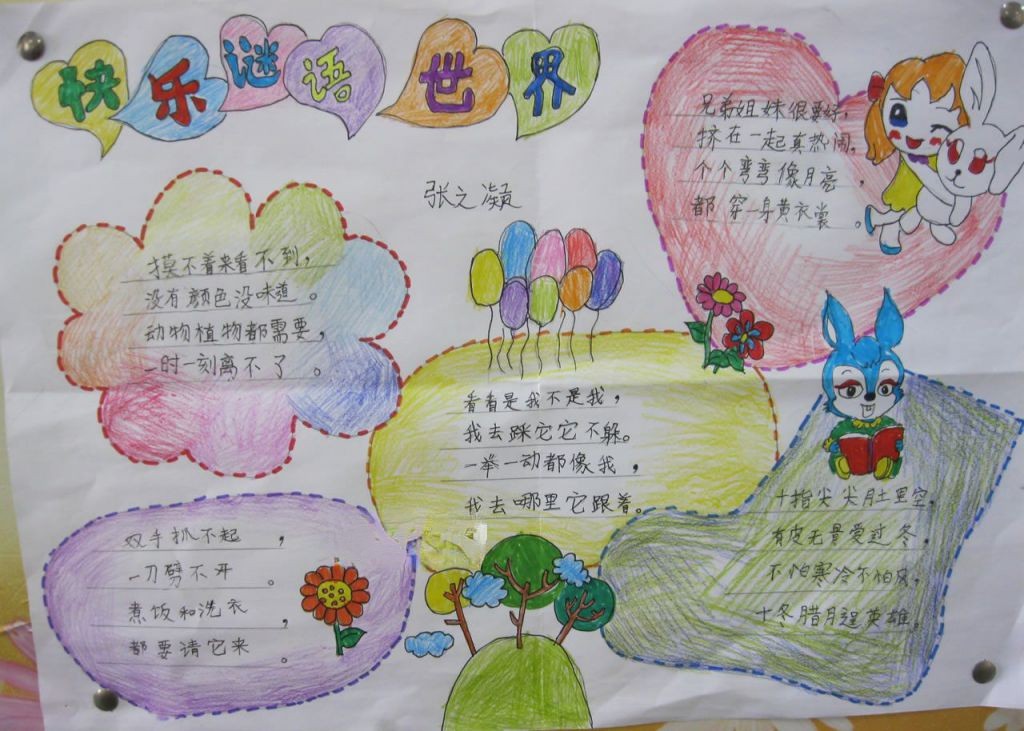 快乐谜语世界
张之凝
兄弟姐妹很要好，
挤在一起真热闹。
个个弯弯像月亮，
都穿一身黄衣裳。
摸不着来看不到，
没有颜色没味道。
动物植物都需要，
一时一刻离不了。
看看是我不是我，
我去踩它它不躲。
一举一动都像我，
我去哪里它跟着。
双手抓不起，
一刀劈不开。
煮饭和洗衣，
都要请它来。
十指尖尖肚里空，
有皮无骨爱过冬。
不怕寒冷不怕风，
十冬腊月逞英雄。